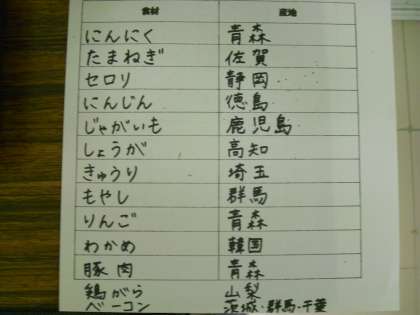 食材 産地
にんにく 青森
たまねぎ 佐賀
セロリ 静岡
にんじん 徳島
じゃがいも 鹿児島
しょうが 高知
きゅうり 埼玉
もやし 群馬
りんご 青森
わかめ 韓国
豚肉 青森
鶏がら 山梨
ベーコン 茨城・群馬・千葉